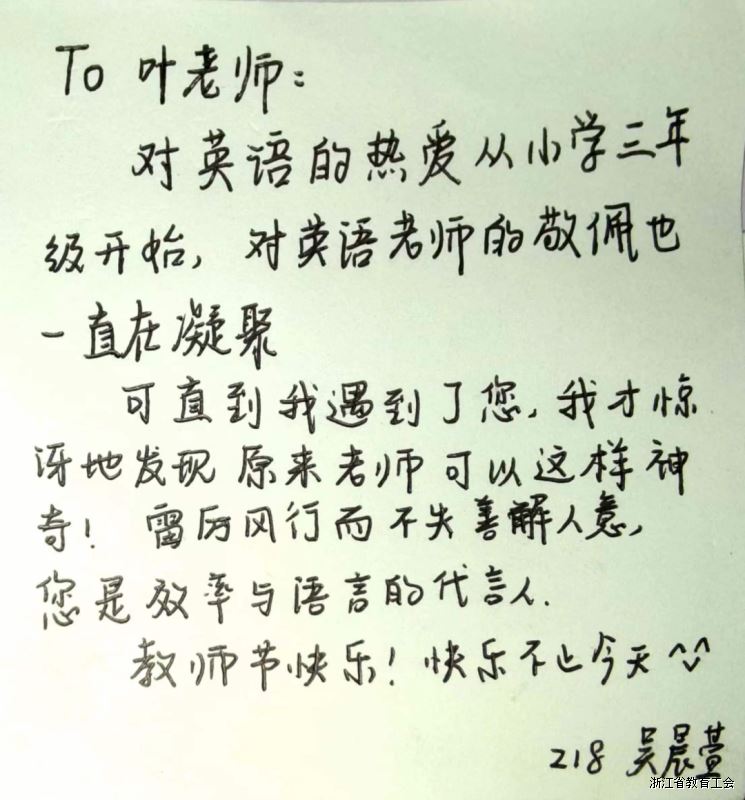 To 叶老师：
对英语的热爱从小学三年
级开始，对英语老师的敬佩也
一直在凝聚
可直到我遇到了您，我才惊
讶地发现原来老师可以这样神
奇！雷厉风行而不失善解人意，
您是效率与语言的代言人.
教师节快乐！快乐不止今天^_^
218 吴晨萱
浙江省教育工会